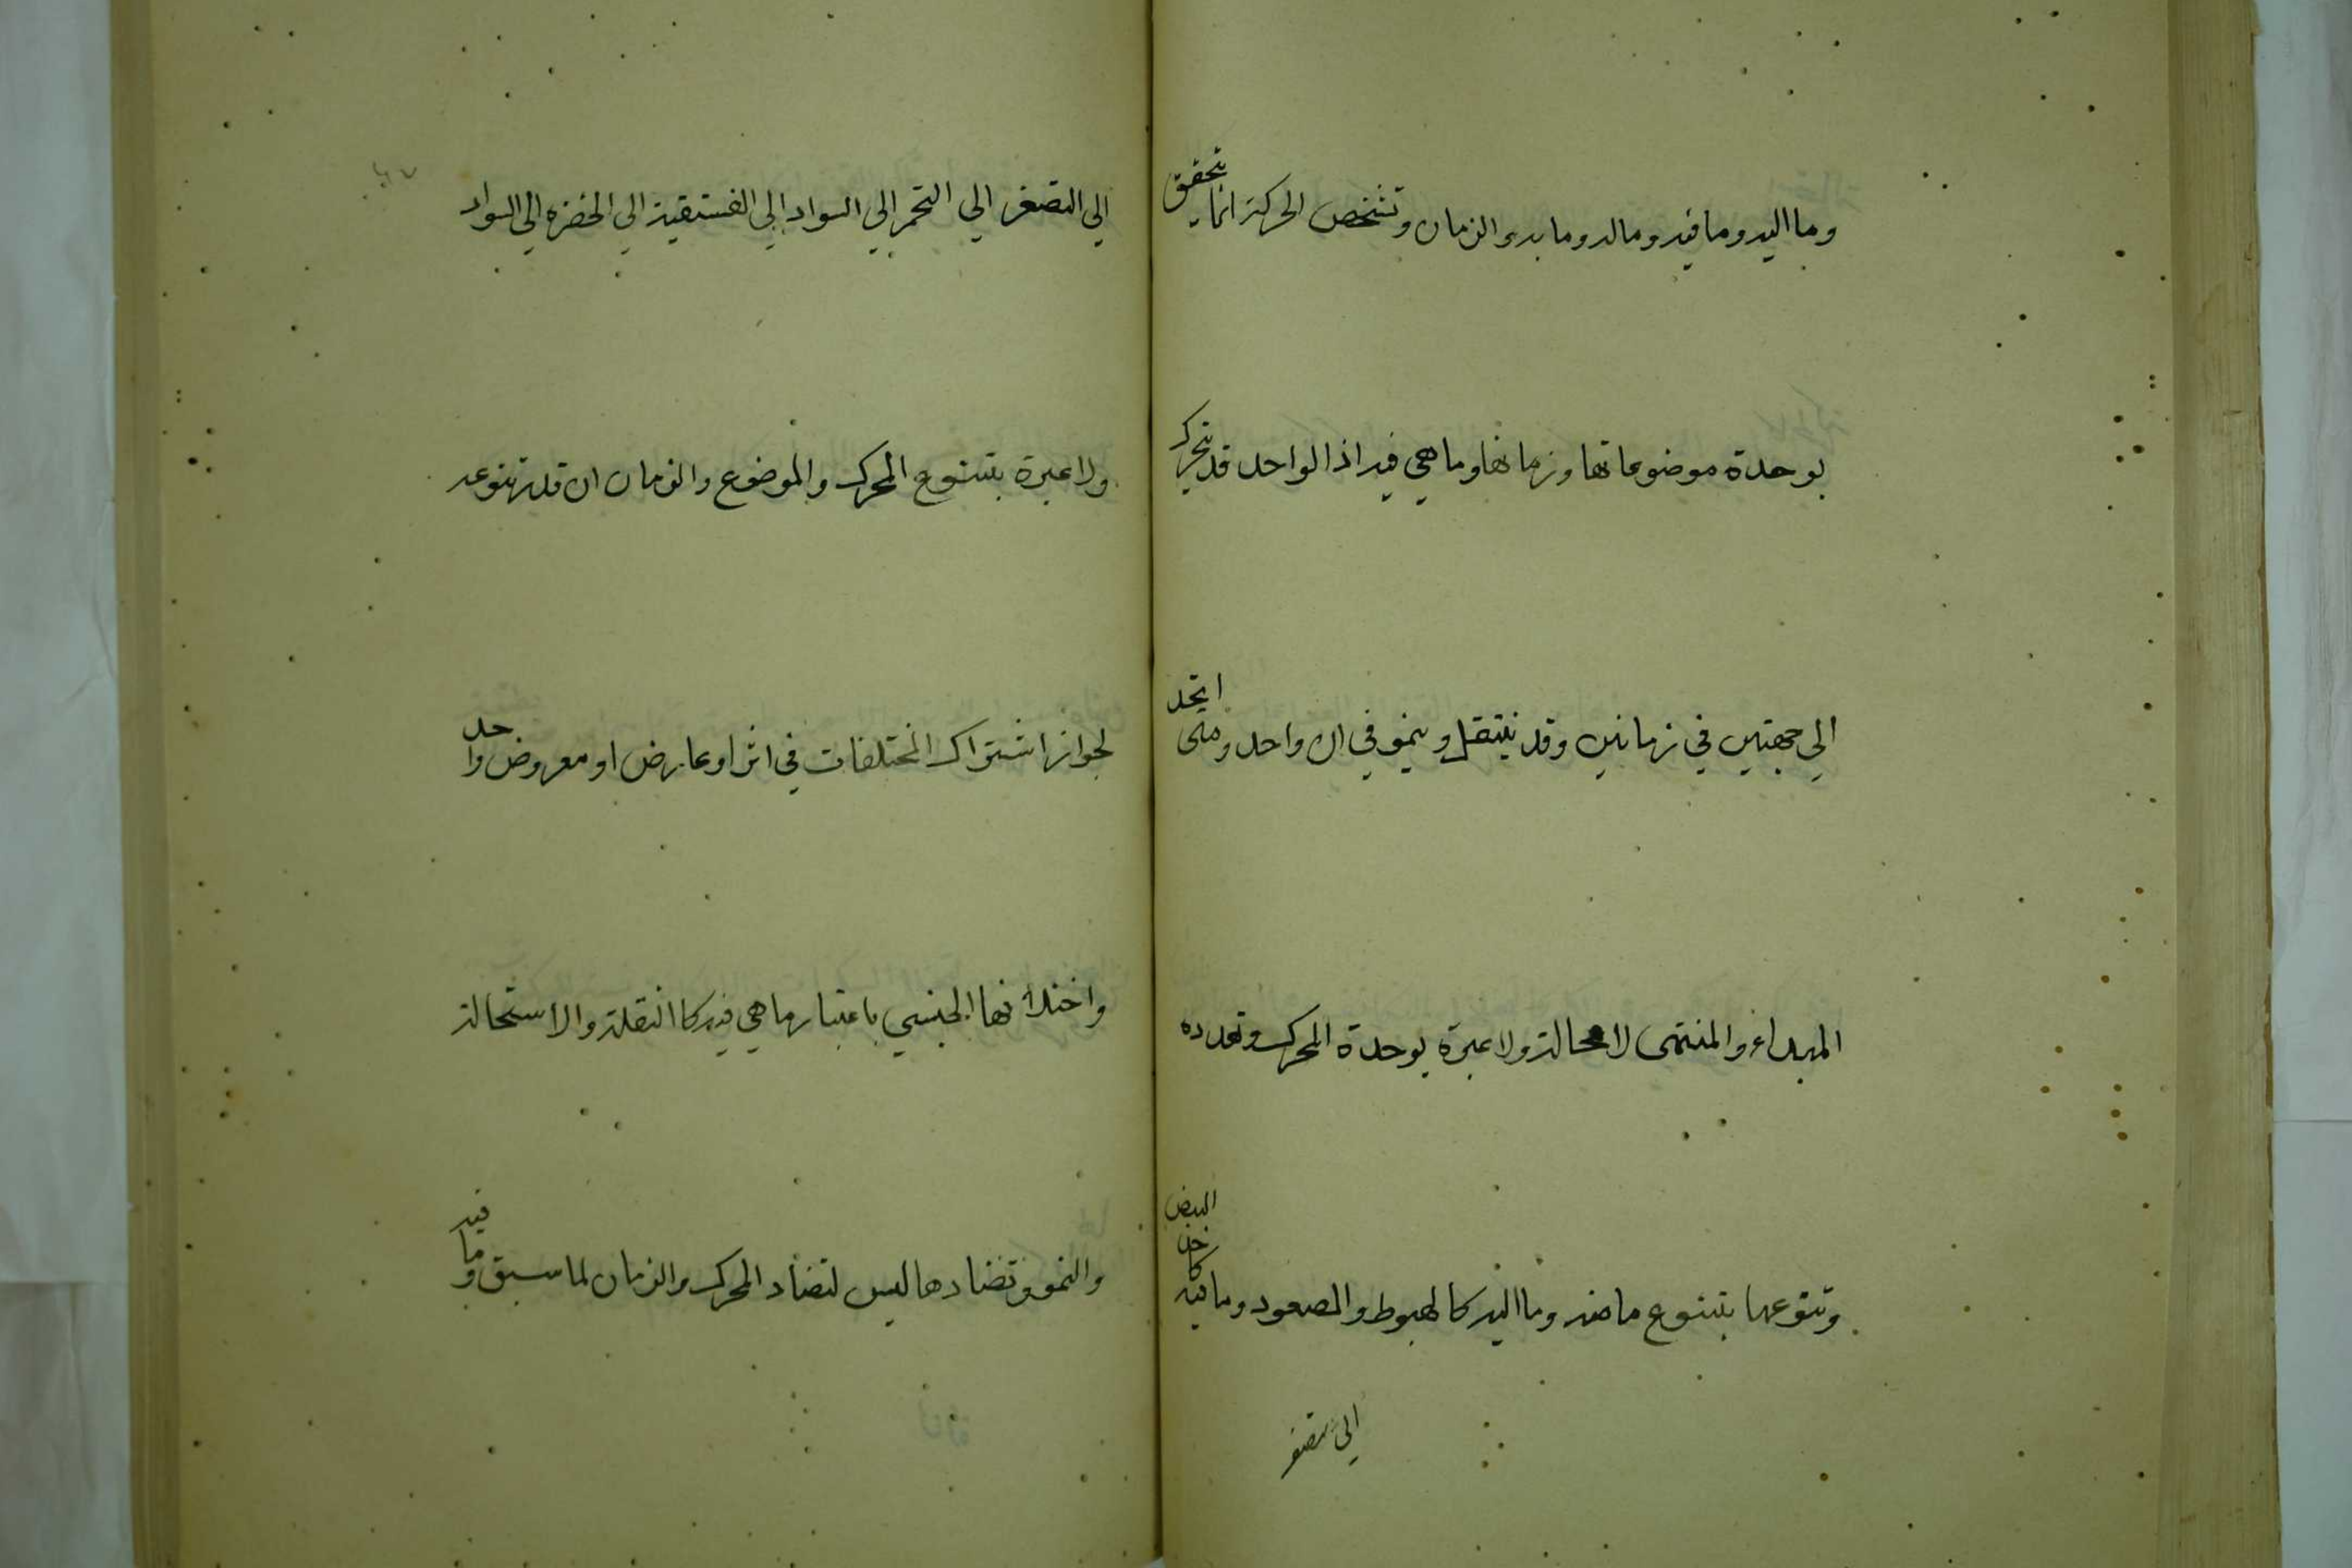 وما اليه وما فيه وما له وما به والزمان وتشخص الحركة انما يتحقق
بوحدة موضوعاتها وزمانها وما هي فيه اذ الواحد قد يتحرك
الي جهتين في زمانين وقد ينتقل وينمو في ان واحد ومتى اتحد
المبداء والمنتهى لا محالة ولا عبرة بوحدة المحرك وتعدده
وتنوعها بتنوع ما منه وما اليه كالهبوط والصعود وما فيه كاخذ البيض
الي التصفر
الي التصفر الي التحمر الي السواد الي الفستقية الي الخضرة الي السواد
ولا عبرة بتنوع المحرك والموضوع والزمان ان قدر تنوعه
لجواز اشتراك المختلفات في اثر او عارض او معروض واحد
واختلافها الجنسي باعتبار ما هي فيه كالنقلة والاستحالة
والنمو وتضادها ليس لتضاد المحرك والزمان لما سبق وما فيه